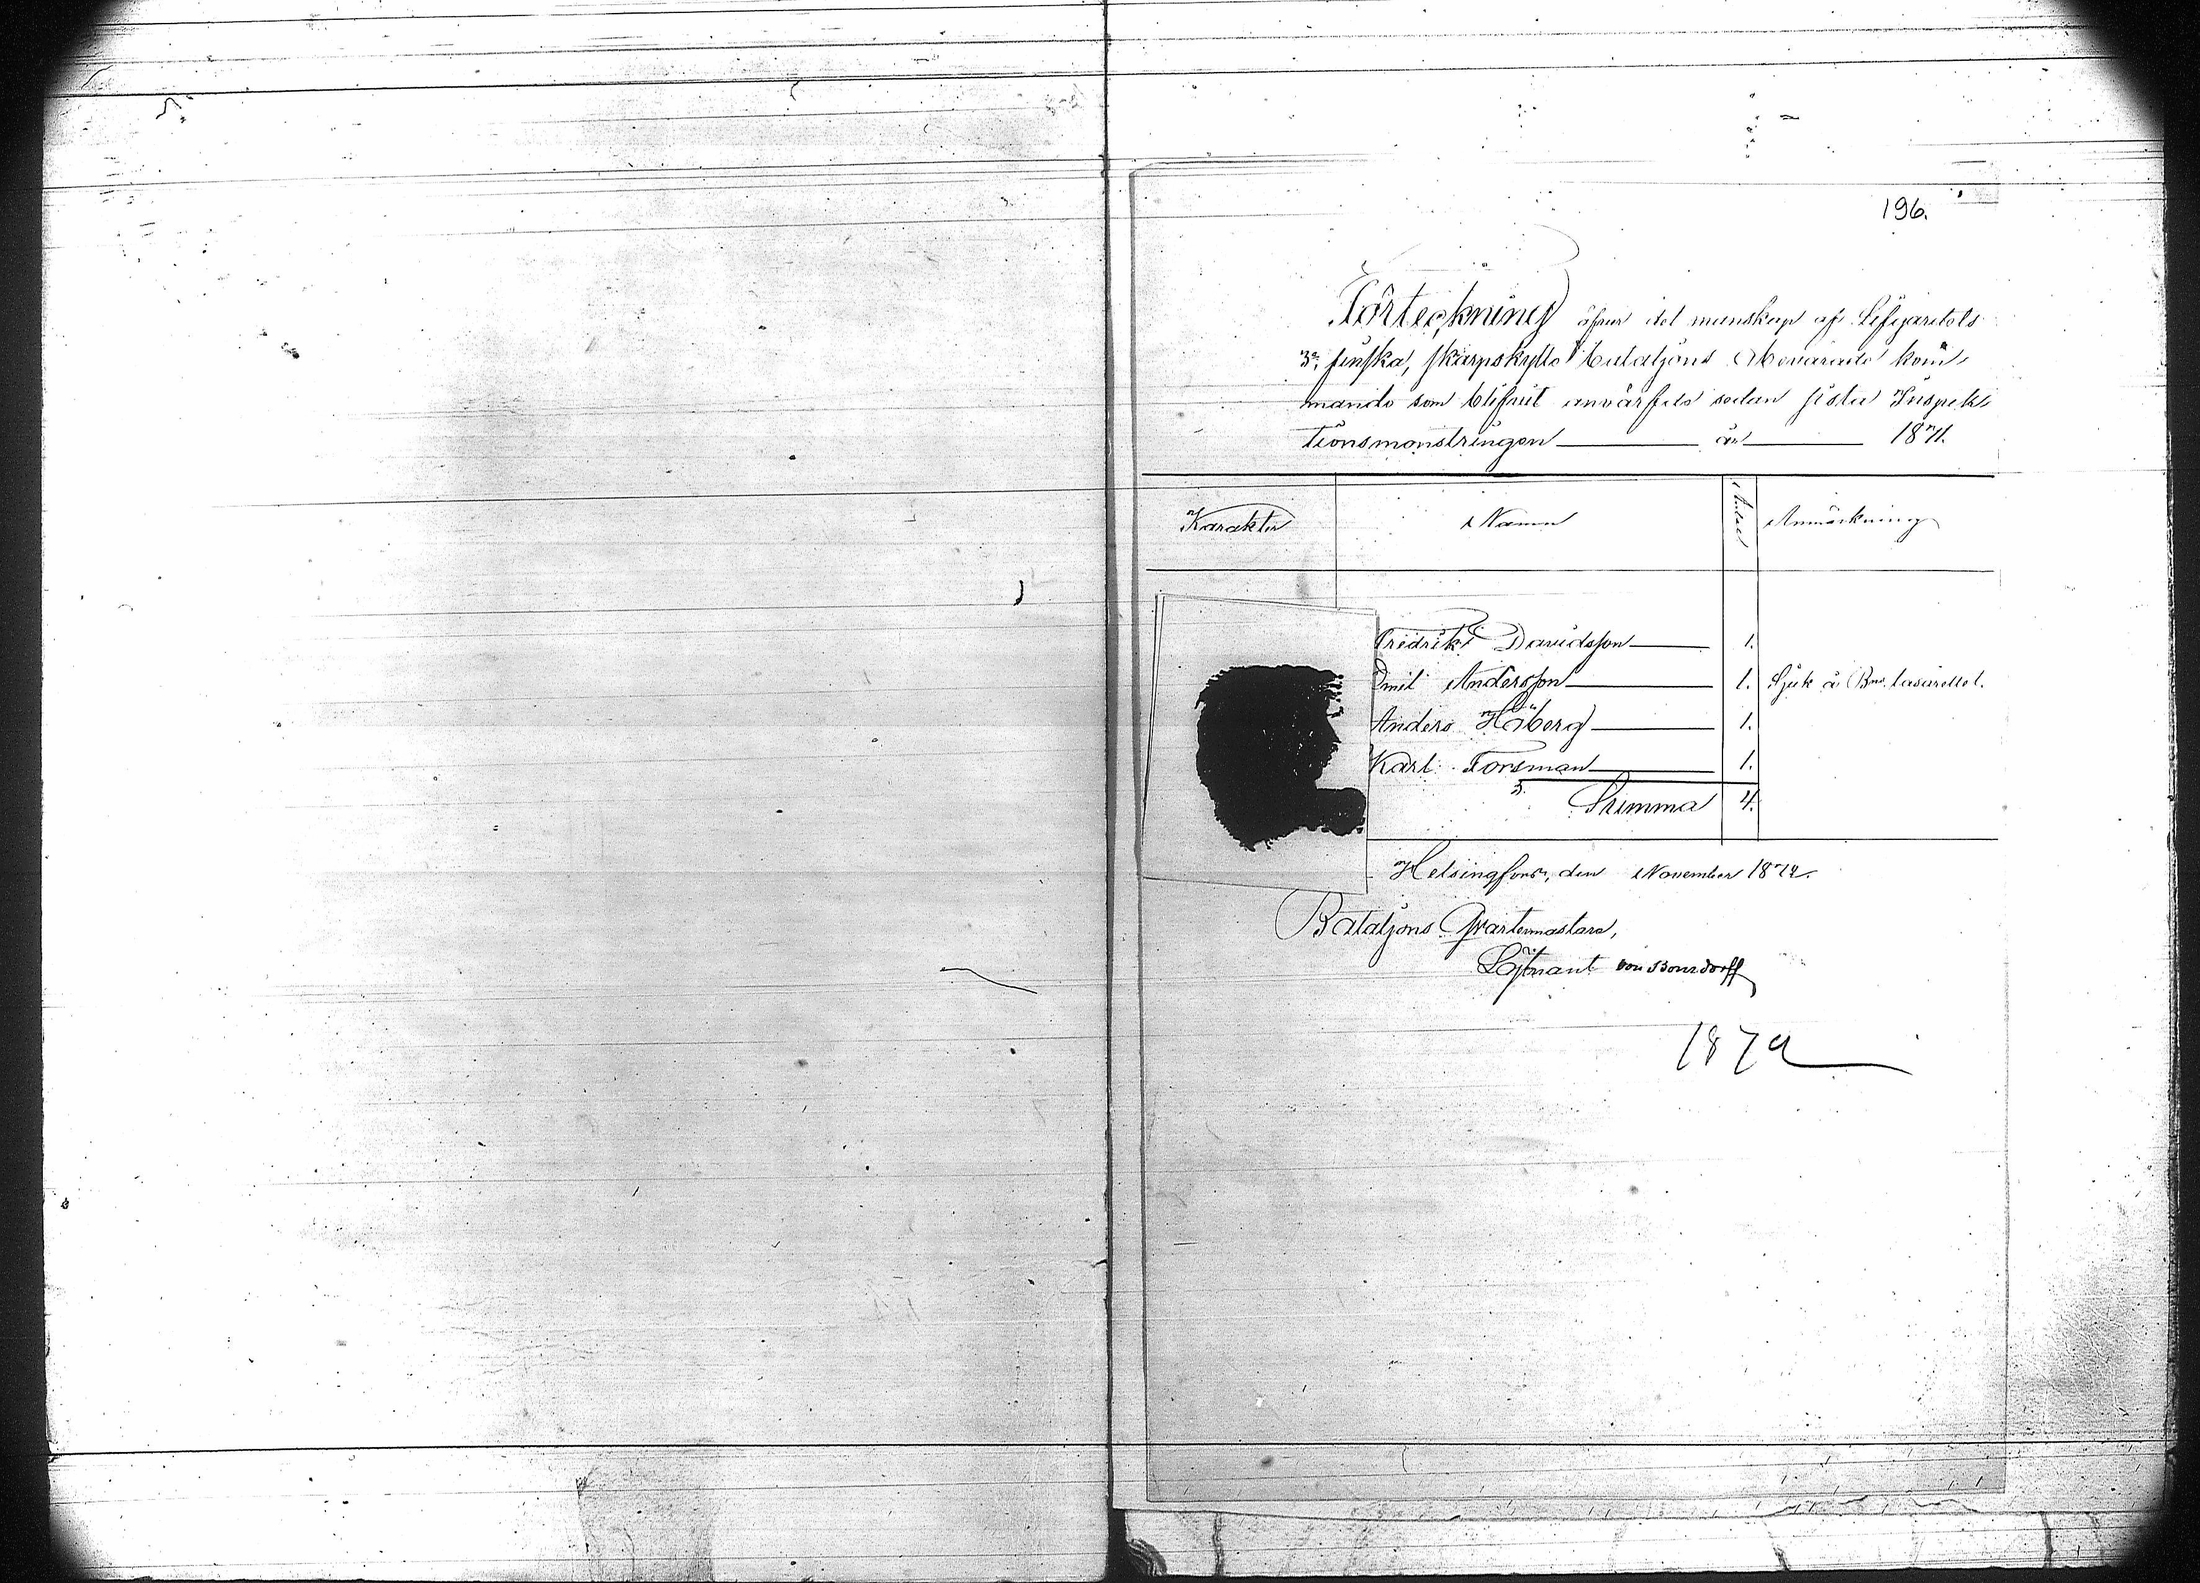 196.
Förteckning öfver det manskap af Lifgardets
3e finska, skarpskytte bataljons kom-
mando som blifvit anvärfdt sedan sista Inspek-
tionsmönstringen år 1871.
Karakter Namn Antal Anmärkning
Fredrik Davidsson 1.
Emil Andersson 1. Sjuk å Bns. lasarettet.
Anders Höberg 1.
Karl Forsman 1.
Summa 4.
Helsingfors, den November 1872.
Bataljons Qvartermästare,
Löjtnant von Bonsdorff
1872